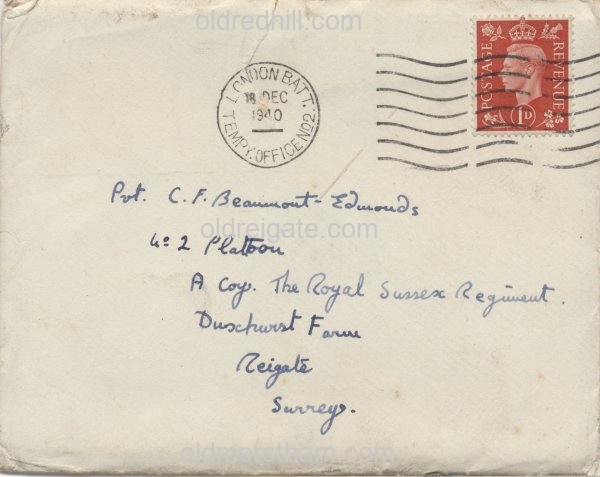 oldredhill.com
POSTAGE REVENUE
1D
LONDON BATT.
18 DEC
1940
TEMPY. OFFICE No2
Pvt. C. F. Beaumont-Edmonds
oldreigate.com
No 2 Platoon
A Coy. The Royal Sussex Regiment.
Duxhurst Farm
Reigate
Surrey.
oldmerstham.com